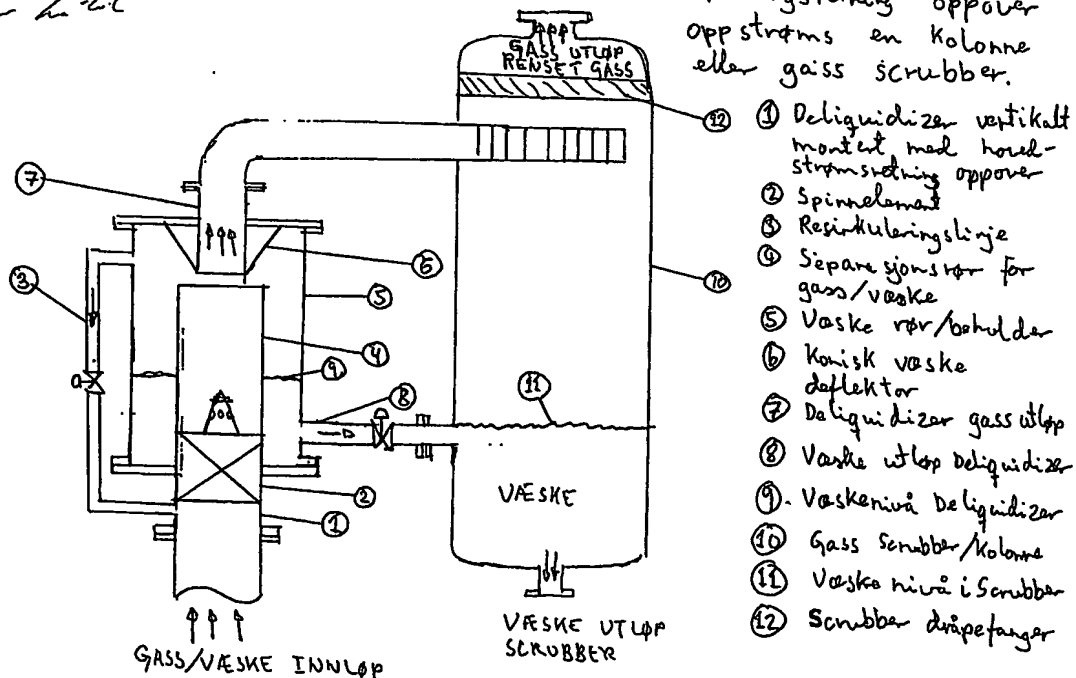 oppover
oppstrøms en kolonne
eller gass scrubber.
① Deliquidizer vertikalt
montert med hoved-
strømsretning oppover
② Spinnelement
③ Resirkuleringslinje
④ Separasjonsrør for
gass/væske
⑤ Væske rør/beholder
⑥ Konisk væske
deflektor
⑦ Deliquidizer gass utløp
⑧ Væske utløp Deliquidizer
⑨. Væskenivå Deliquidizer
⑩ Gass Scrubber/Kolonne
⑪ Væske nivå i Scrubber
⑫ Scrubber dråpefanger
GASS UTLØP
RENSET GASS
⑫
⑦
③
⑥
⑤
④
⑨
⑧
②
①
⑩
⑪
VÆSKE
VÆSKE UTLØP
SCRUBBER
GASS/VÆSKE INNLØP